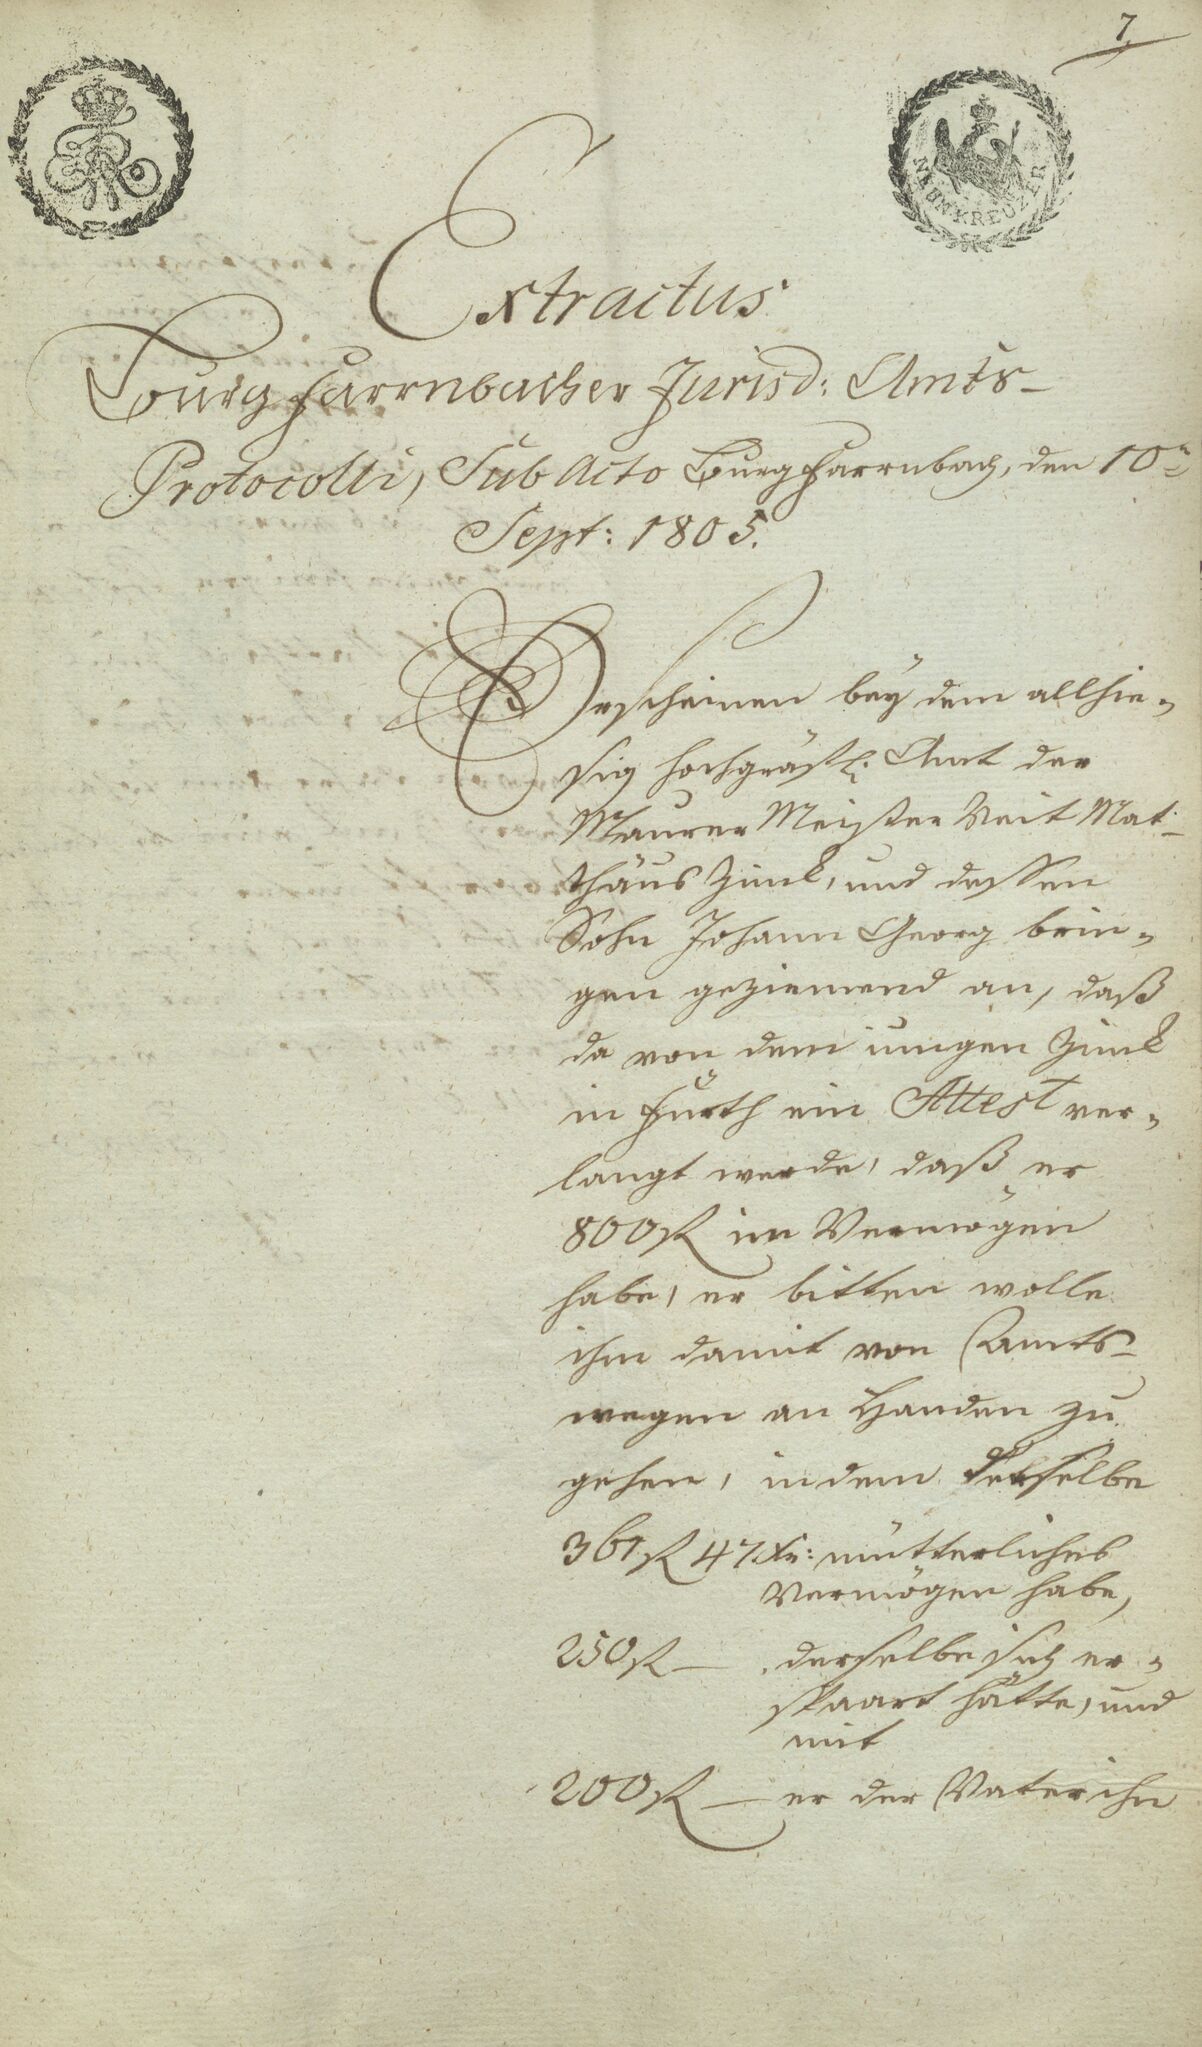 7.
FWR
NEUNKREUZER
Extractus
Burgfarrnbacher Jurisd: Amts-
Protocolli, Sub Acto Burgfarrnbach, den 10n
Sept: 1805.
Erscheinen bey dem allhie-
sig hochgräfl: Amt der
Maurer Meister Veit Mat-
thäus Zink, und dessen
Sohn Johann Georg brin-
gen geziemend an, daß
da von dem iungen Zink
in Fürth ein Attest ver-
langt werde, daß er
800 fl im Vermögen
habe, er bitten wolle
ihm damit von Amts-
wegen an Handen zu
gehen, indem derselbe
361 fl 47 Xr: mütterliches
Vermögen habe,
250 fl — derselbe sich er-
spaart hätte, und
mit
200 fl — er der Vater ihn